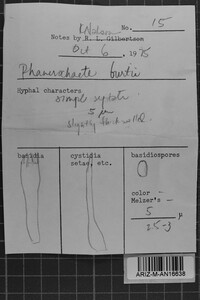 K Nelson No. 15
Notes by R. L. Gilbertson
Oct 6, 1975
Phanerochaete burtii
Hyphal characters
simple septate
5 µ
slightly thick walled
basidia cystidia basidiospores
setae, etc.
color -
Melzer's -
5 µ
25-3
ARIZ-M-AN16638